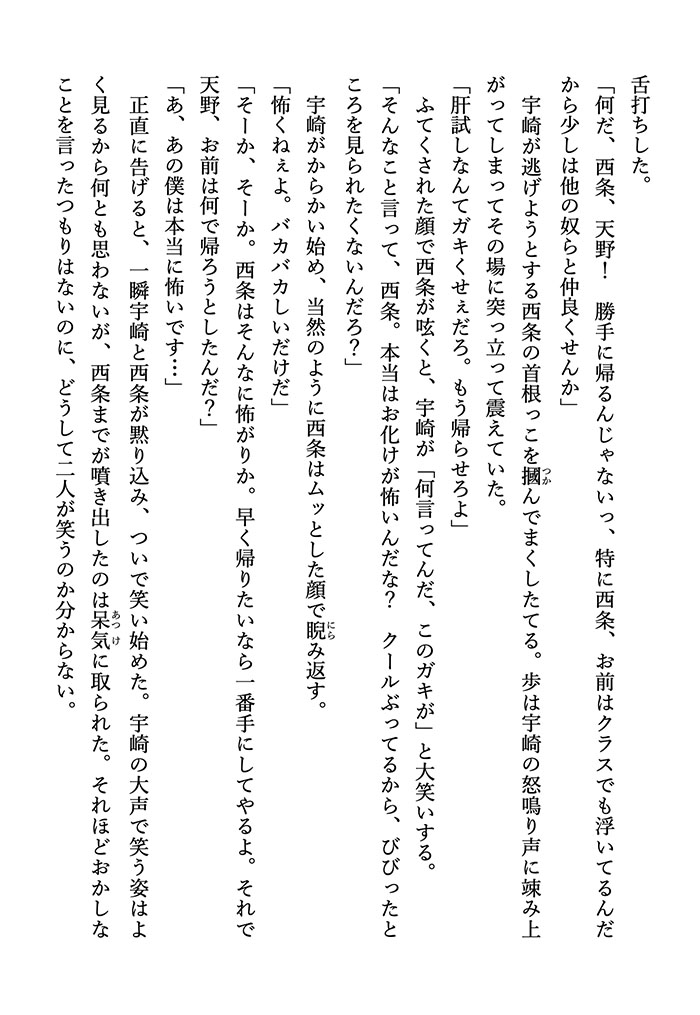 舌打ちした。
「何だ、西条、天野！　勝手に帰るんじゃないっ、特に西条、お前はクラスでも浮いてるんだ
から少しは他の奴らと仲良くせんか」
　宇崎が逃げようとする西条の首根っこを摑んでまくしたてる。歩は宇崎の怒鳴り声に竦み上
がってしまってその場に突っ立って震えていた。
「肝試しなんてガキくせぇだろ。もう帰らせろよ」
　ふてくされた顔で西条が呟くと、宇崎が「何言ってんだ、このガキが」と大笑いする。
「そんなこと言って、西条。本当はお化けが怖いんだな？　クールぶってるから、びびったと
ころを見られたくないんだろ？」
　宇崎がからかい始め、当然のように西条はムッとした顔で睨み返す。
「怖くねぇよ。バカバカしいだけだ」
「そーか、そーか。西条はそんなに怖がりか。早く帰りたいなら一番手にしてやるよ。それで
天野、お前は何で帰ろうとしたんだ？」
「あ、あの僕は本当に怖いです…」
　正直に告げると、一瞬宇崎と西条が黙り込み、ついで笑い始めた。宇崎の大声で笑う姿はよ
く見るから何とも思わないが、西条までが噴き出したのは呆気に取られた。それほどおかしな
ことを言ったつもりはないのに、どうして二人が笑うのか分からない。